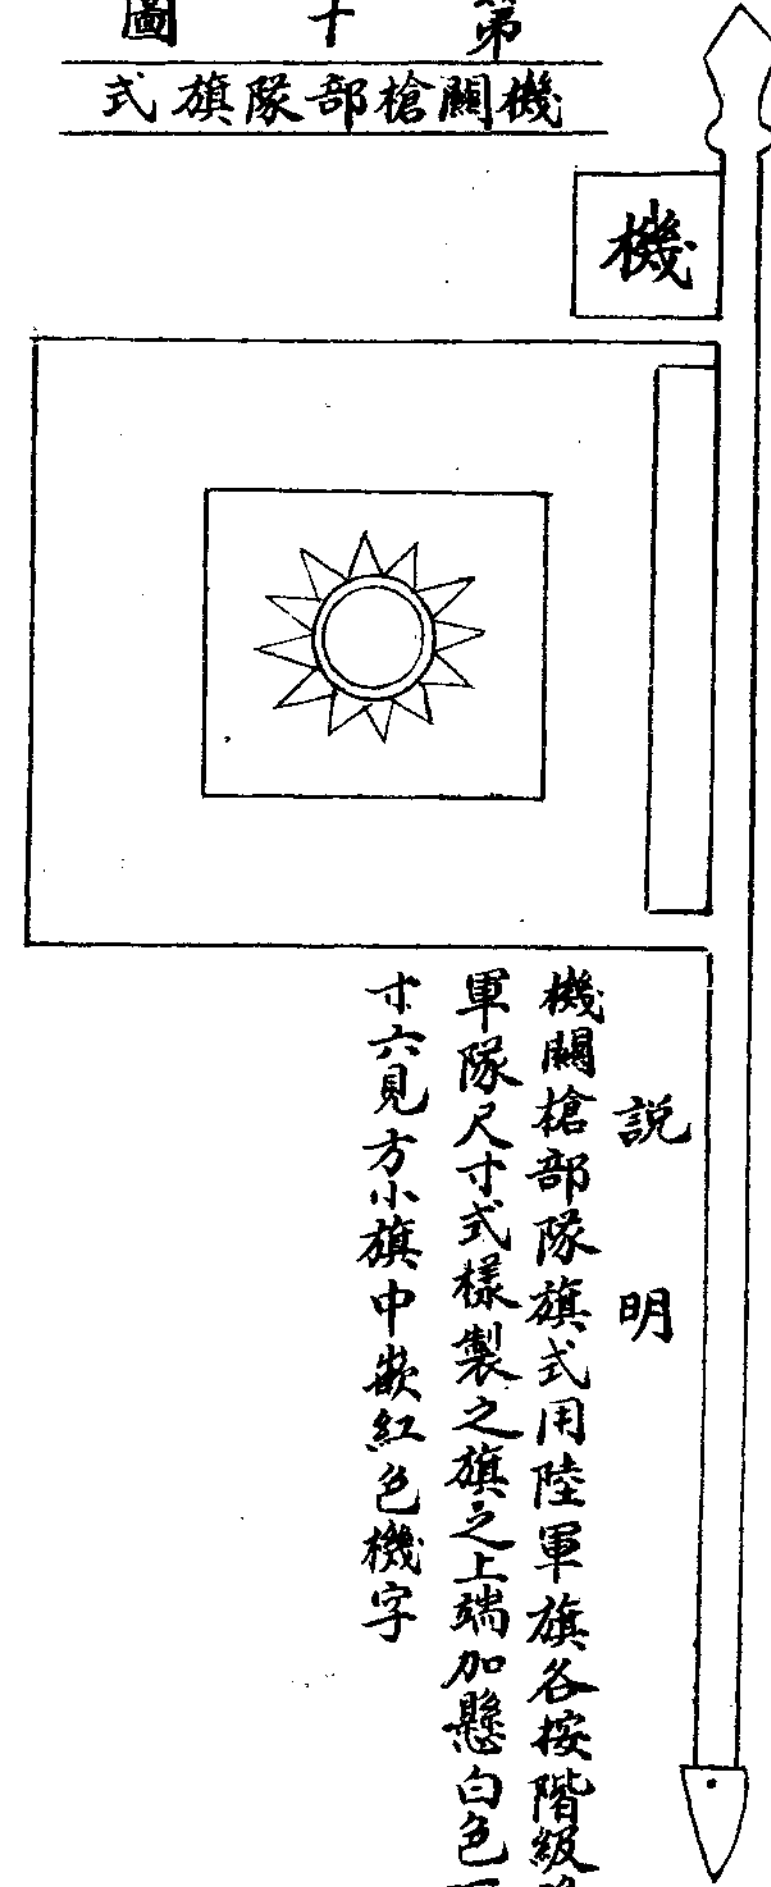 第十圖
機關槍部隊旗式
機
說明
機關槍部隊旗式用陸軍旗各按階級
軍隊尺寸式樣製之旗之上端加懸白色
寸六見方小旗中嵌紅色機字